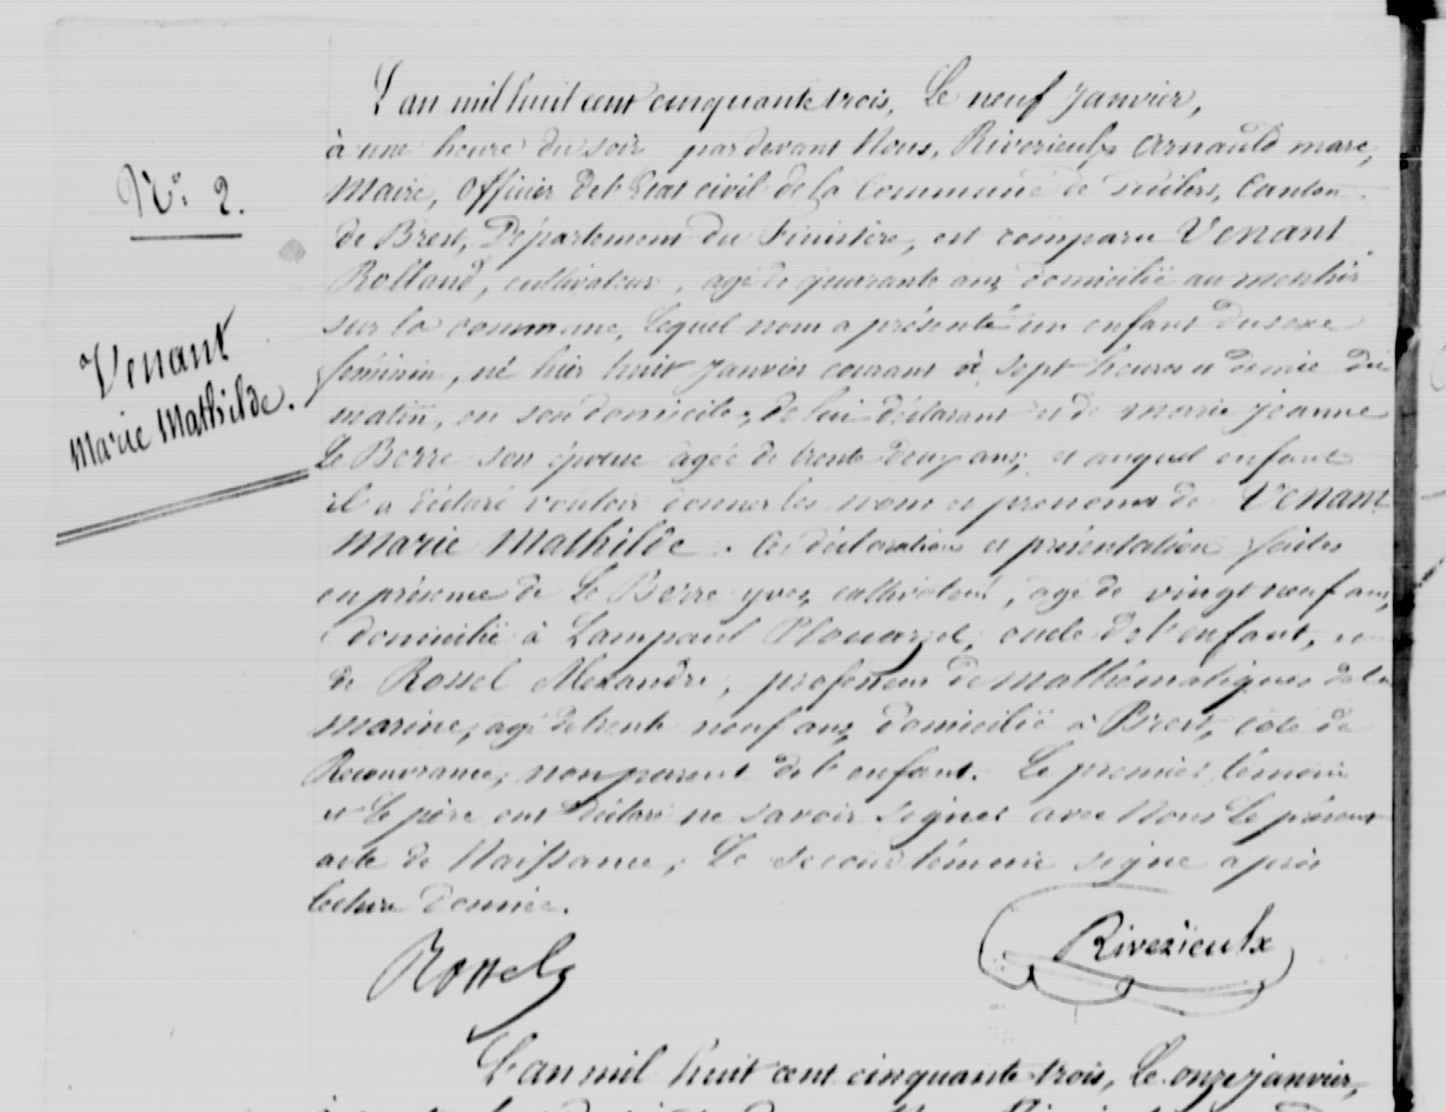 L'an mil huit cent cinquante trois, Le neuf Janvier,
à une heure du soir par devant Nous, Riverieulx Arnauld marc,
N° 2.
Maire, Officier de l'Etat civil de la Commune de Canton
de Brest, Département du Finistère, est comparu Venant
Rolland, cultivateur, agé de quarante ans domicilié au menhir
sur la commune, lequel nous a présenté un enfant du sexe
Venant
Marie Mathilde.
féminin, né hier huit Janvier courant à sept heures et demie du
matin, en son domicile, de lui déclarant et de marie jeanne
Le Berre son épouse agée de trente deux ans, et auquel enfant
il a déclaré vouloir donner les nom et prenoms de Venant
Marie Mathilde. Ces déclaration et présentation faites
en présence de Le Berre yves, cultivateur, agé de vingt neuf ans,
domicilié à Lampaul Plouarzel, oncle de l'enfant, et
de Rossel Alexandre, professeur de mathématiques de la
marine, agé de trente neuf ans, domicilié à Brest, coté de
Recouvrance, non parent de l'enfant. Le premier témoin
et le père ont déclaré ne savoir signer avec Nous le présent
acte de Naissance, Le second témoin signe après
lecture donnée.
Rossel
Riverieulx
L'an mil huit cent cinquante trois, Le onze janvier,